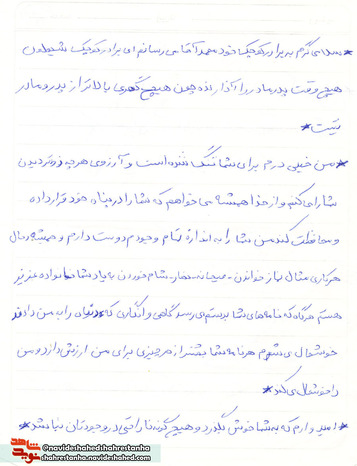 *سلامی گرم به برادر کوچک خود محمد آقا می رسانم ای برادر کوچک
هیچ وقت پدر مادر را آزار نده چون هیچ گوهری بالاتر از پدر و مادر
نیست*
*من خیلی دلم برای شما تنگ شده است و آرزوی هرچه زودتر دیدن
شما را می کنم و از خدا همیشه می خواهم که شما را در پناه خود قرار داده
و محافظت کند من شما را به اندازه تمام وجودم دوست دارم و همیشه در حال
هر کاری مثال نماز خواندن - صبحانه - نهار - شام خوردن به یاد شما خانواده عزیز
هستم هرگاه که نامه های شما بدستم می رسد گاهی و انگاری که دنیا را به من دادند
خوشحال می شوم هر نامه شما بیشتر از هر چیزی برای من ارزش دارد و من
را خوشحال می کند*
*امیدوارم که به شما خوش بگذرد و هیچ گونه ناراحتی در وجودتان نباشد*
نوید شاهد
@navideshahedshahrestanha
shahrestanha.navideshahed.com